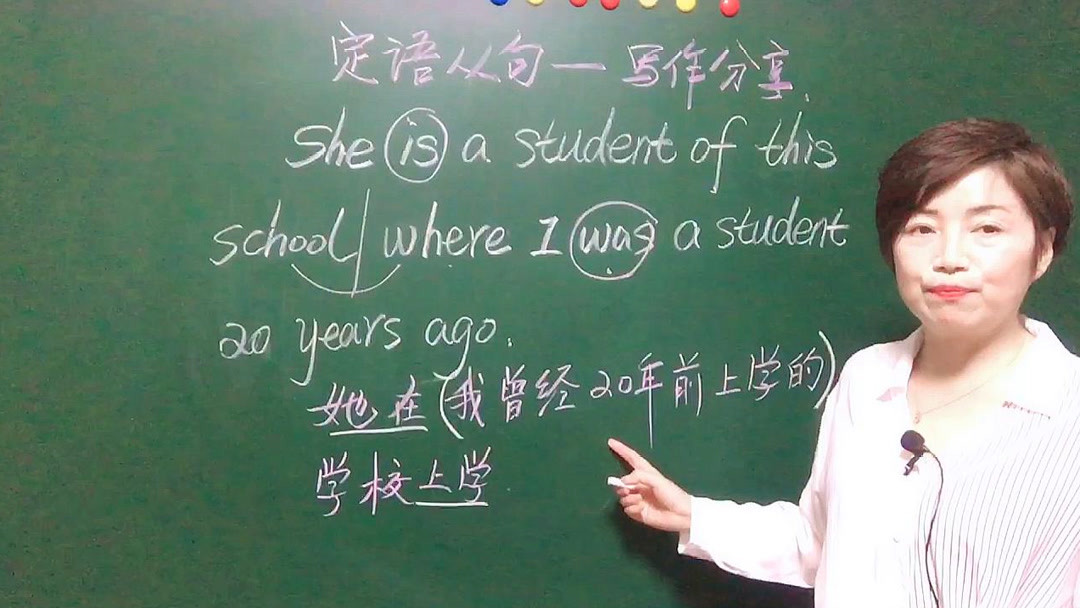 定语从句—写作分享.
She is a student of this
school where I was a student
20 years ago.
她在(我曾经20年前上学的)
学校上学